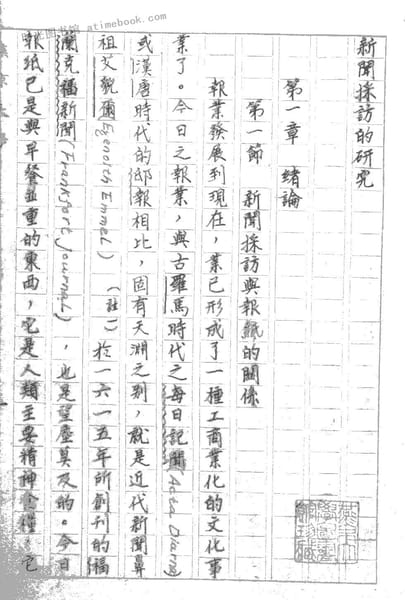 atimebook.com
新聞採訪的研究
第一章　緒論
第一節　新聞採訪與報紙的關係
報業發展到現在，業已形成了一種工商業化的文化事
業了。今日之報業，與古羅馬時代之每日記聞(Acta Diurna)
或漢唐時代的邸報相比，固有天淵之别，就是近代新聞鼻
祖艾貌爾Egenolth Emmel)（註一）於一六一五年所創刊的福
蘭克福新聞(Frankfort Journal)，也是望塵莫及的。今日
報紙已是與早餐並重的東西，它是人類主要精神食糧，它